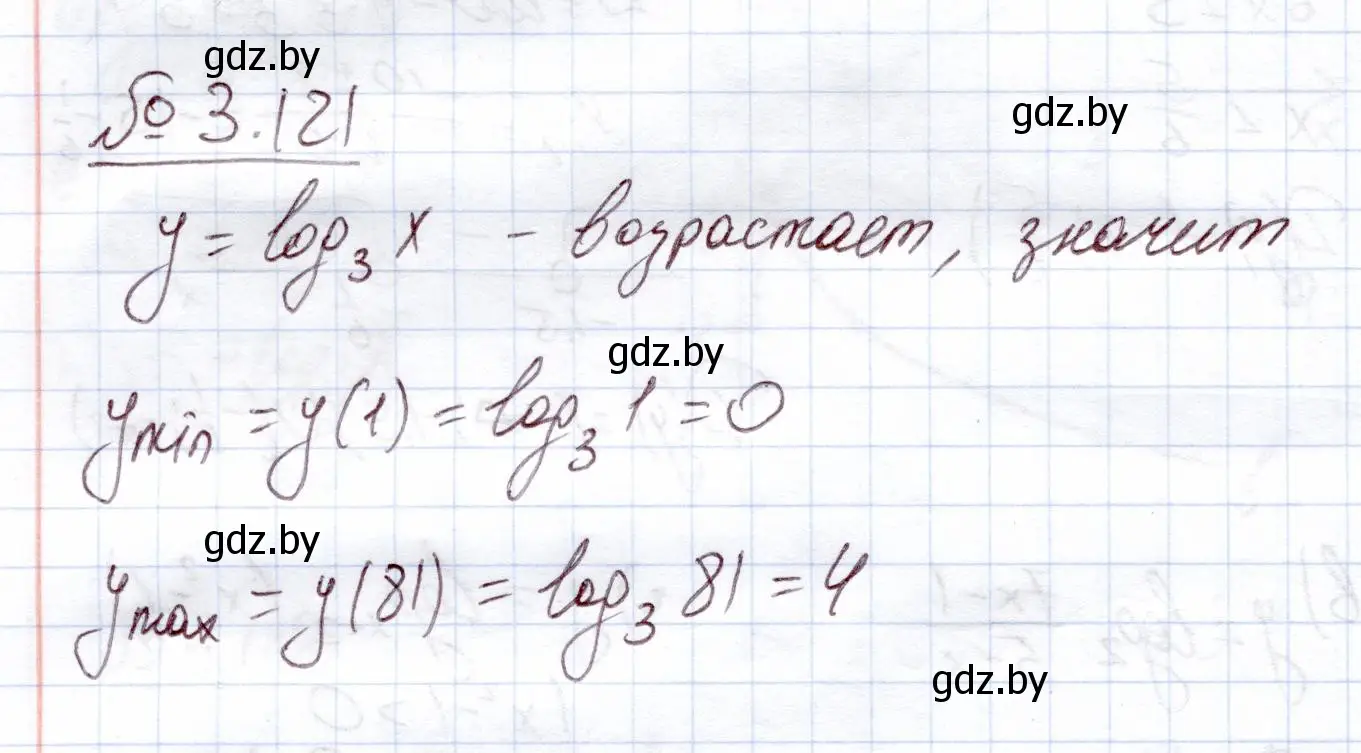 gdz.by
№ 3.121
gdz.by
y = log₃ x - возрастает, значит
gdz.by
y_min = y(1) = log₃ 1 = 0
gdz.by
y_max = y(81) = log₃ 81 = 4
gdz.by